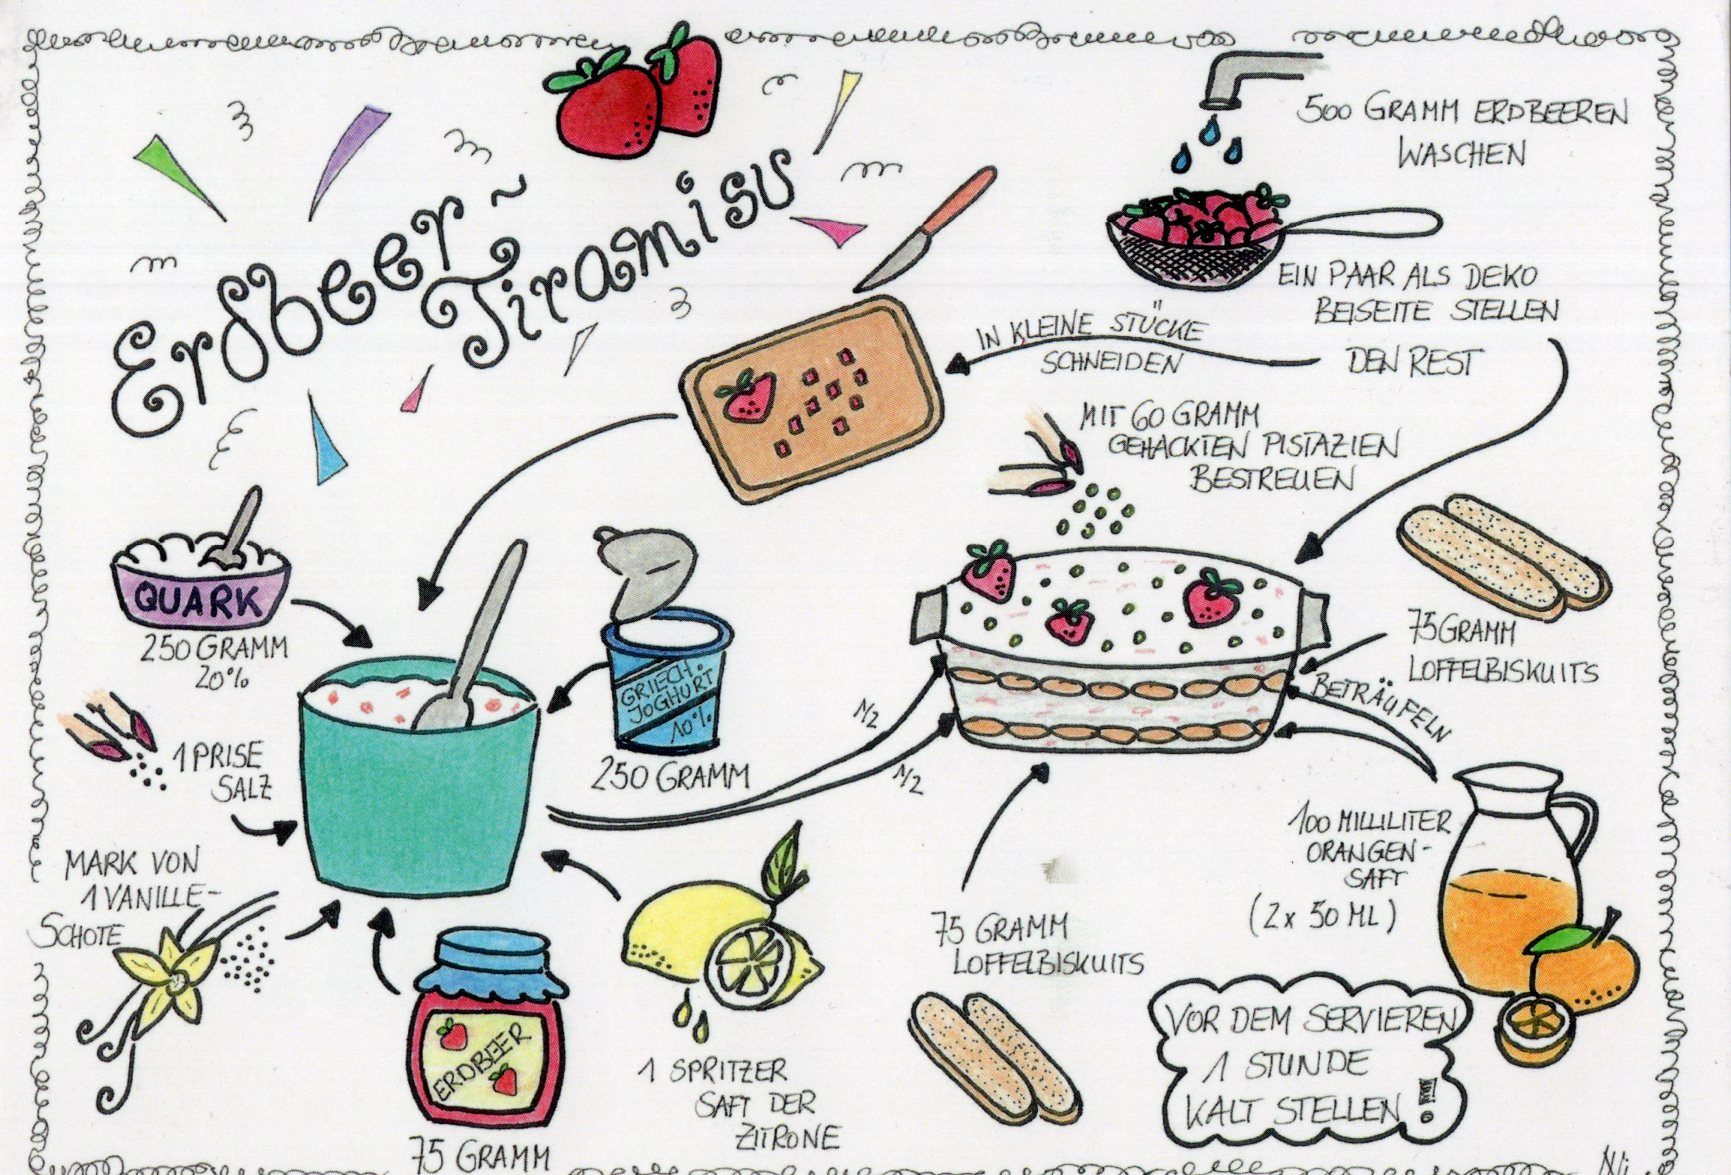 Erdbeer~
Tiramisu
500 GRAMM ERDBEEREN
WASCHEN
EIN PAAR ALS DEKO
BEISEITE STELLEN
DEN REST
IN KLEINE STÜCKE
SCHNEIDEN
MIT 60 GRAMM
GEHACKTEN PISTAZIEN
BESTREUEN
QUARK
250 GRAMM
20%
1 PRISE
SALZ
MARK VON
1 VANILLE-
SCHOTE
ERDBEER
75 GRAMM
GRIECH.
JOGHURT
10%
250 GRAMM
1 SPRITZER
SAFT DER
ZITRONE
1/2
1/2
75 GRAMM
LOFFELBISKUITS
BETRÄUFELN
75 GRAMM
LOFFELBISKUITS
100 MILLILITER
ORANGEN-
SAFT
(2 x 50 ML)
VOR DEM SERVIEREN
1 STUNDE
KALT STELLEN !